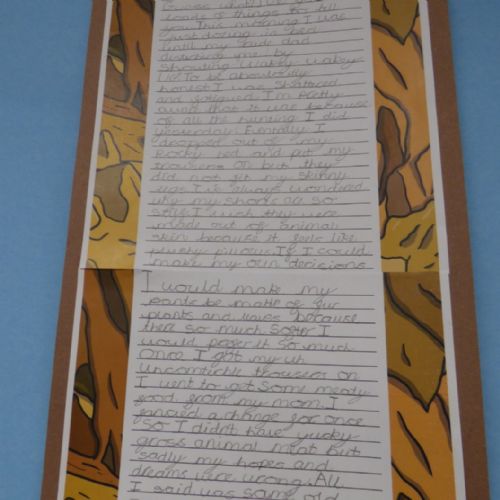 loads of things to tell
you. This morning I was
just dozing in bed
until my rude dad
disturbed me by
shouting "wakey wakey
To be absolutely
honest I was shattered
and fatigued I'm pretty
it was because
of all the hunting I did
yesterday. I
dropped out of my
Rocky bed and put my
trousers on but they
did not fit my skinny
legs I've always wondered
why my shorts are so
I wish they were
made out of animal
skin because it feels like
pillows. If I could
make my own decisions
I would make my
pants be made of fur
plants and because
there so much softer I
would it so much
Once I got my
trousers on
I went to get some meaty
food from my mom. I
a change for once
So I didn't have yucky
gross animal meat but
sadly my hopes and
dreams were wrong. All
I said was same old